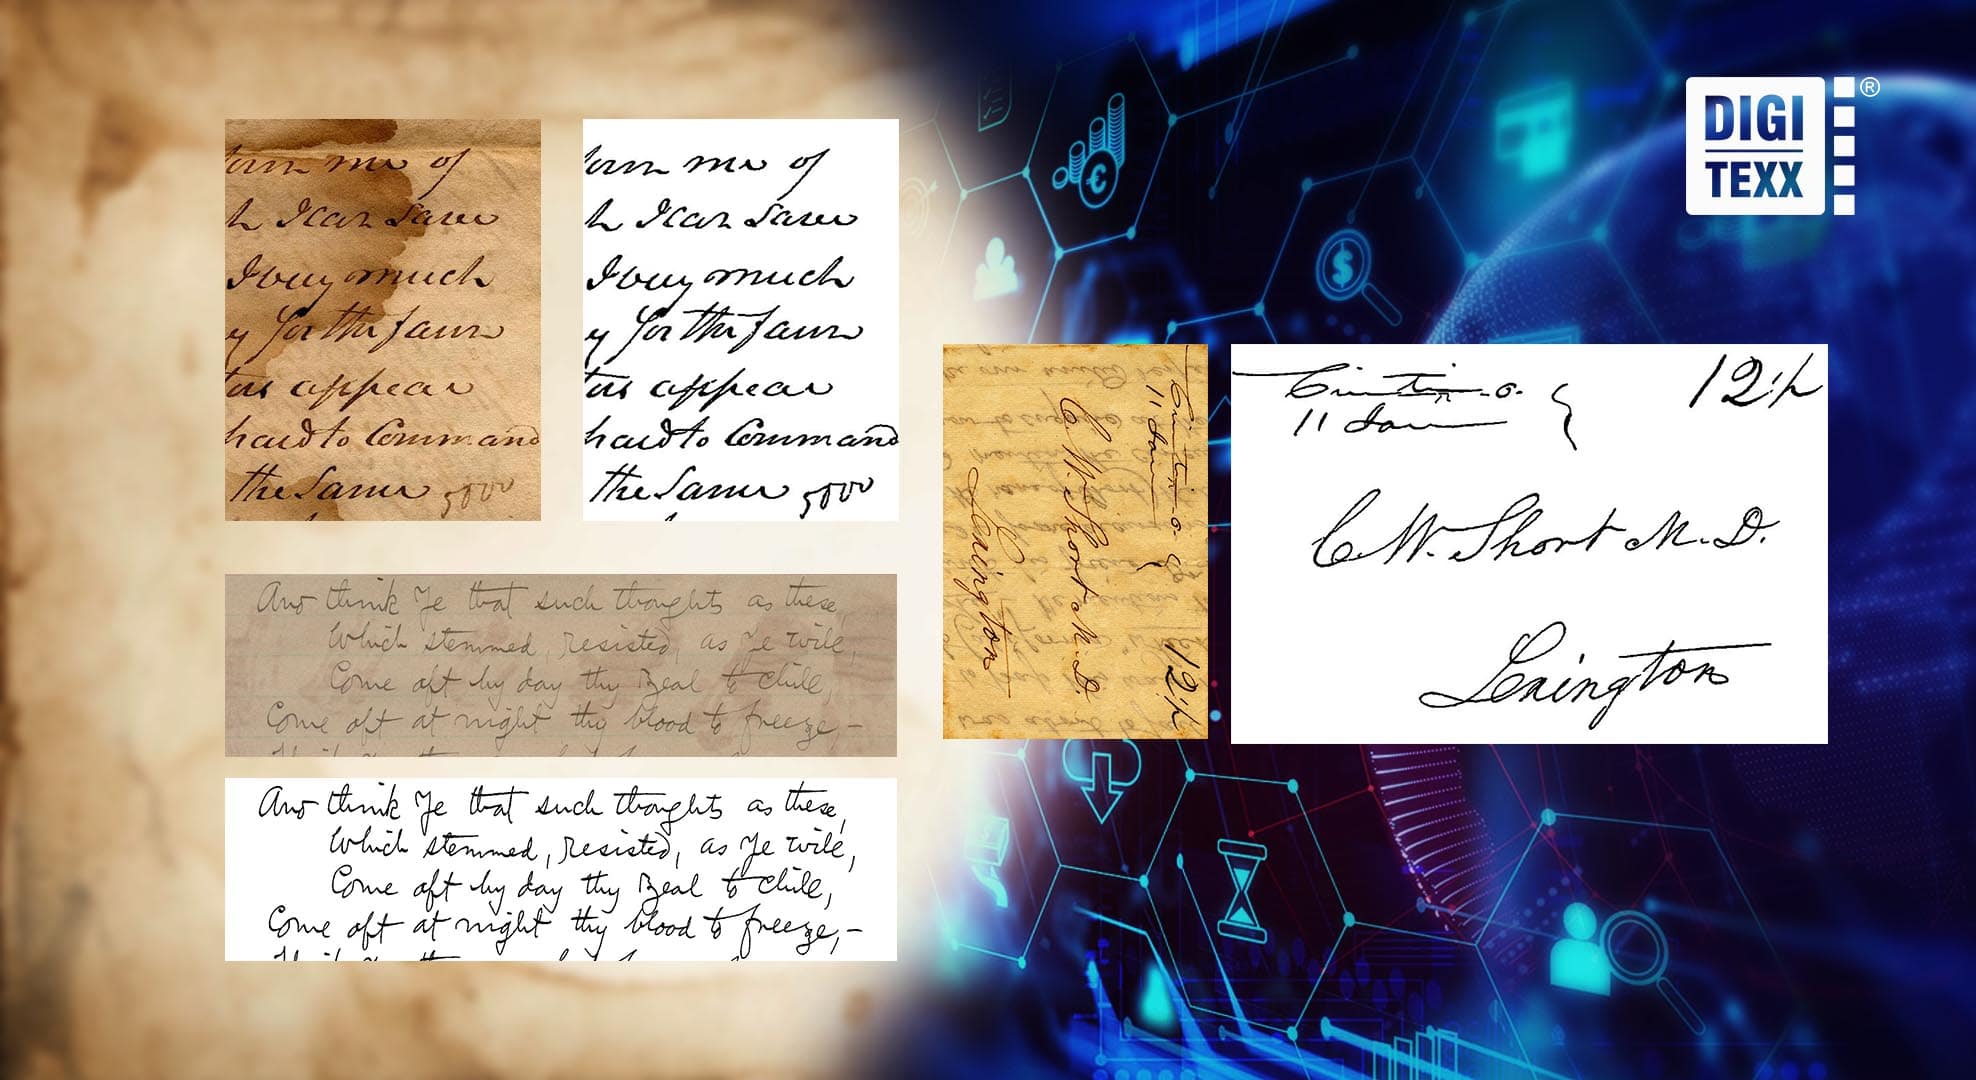 me of
h I can Save
I very much
y for the favor
tors appear
hard to Command
the Same
me of
h I can Save
I very much
y for the favor
tors appear
hard to Command
the Same
And think Ye that such thoughts as these,
Which stemmed, resisted, as Ye will,
Come oft by day thy zeal to chill,
Come oft at night thy blood to freeze,–
And think Ye that such thoughts as these,
Which stemmed, resisted, as Ye will,
Come oft by day thy zeal to chill,
Come oft at night thy blood to freeze,–
11 Jan
12½
C. W. Short M. D.
Lexington
11 Jan
12½
C. W. Short M. D.
Lexington
DIGI
TEXX
®